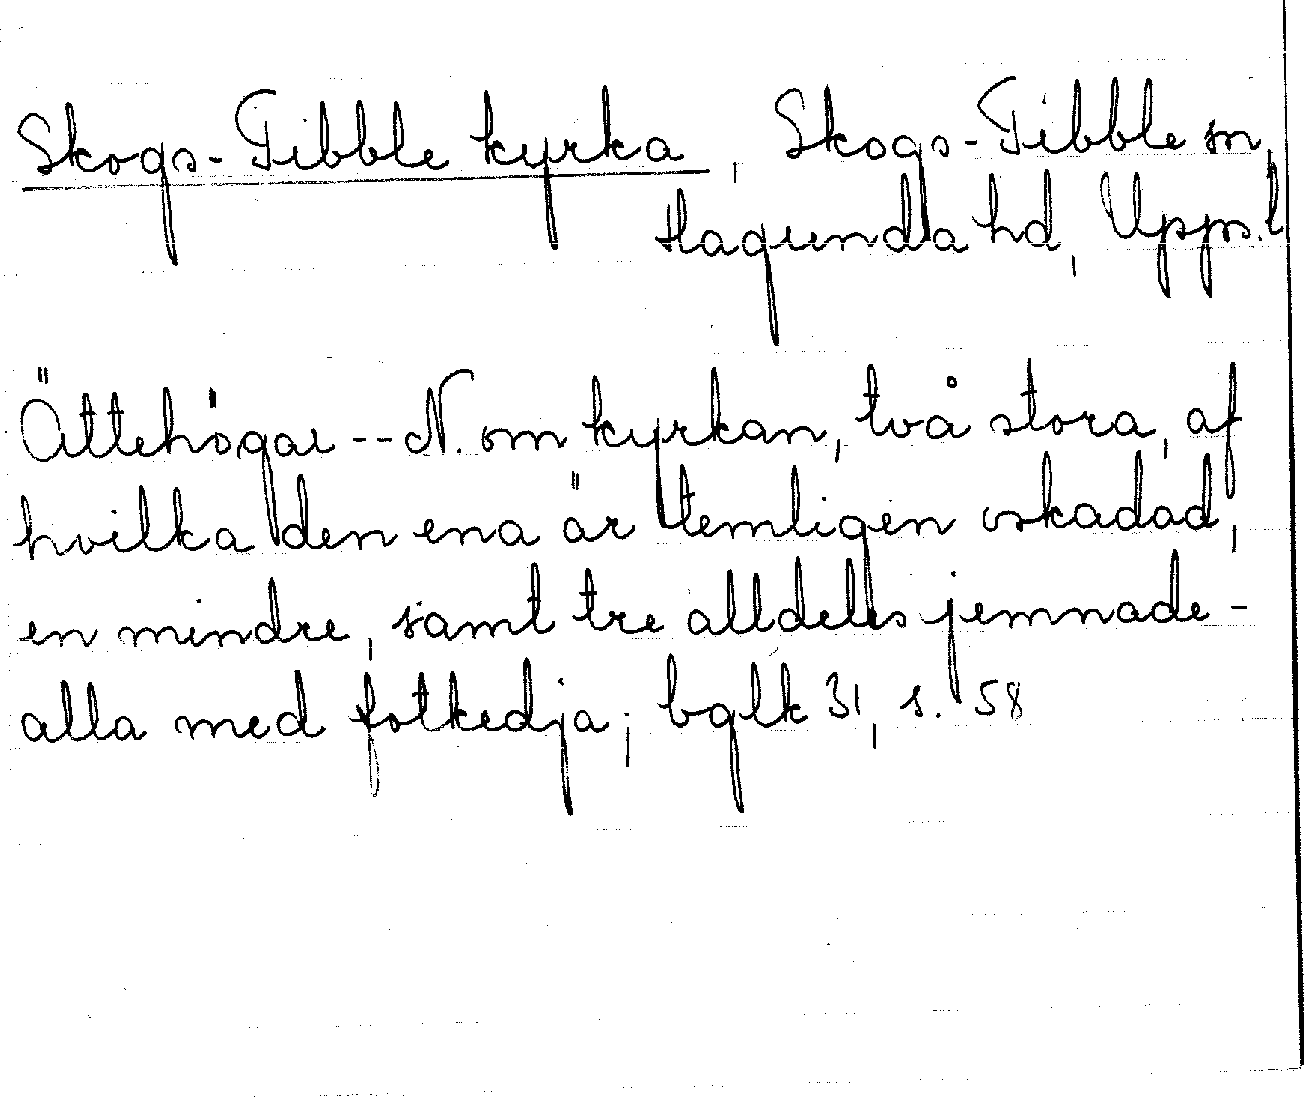 Skogs-Tibble kyrka, Skogs-Tibble sn,
Hagunda hd, Upps.l
Ättehögar -- N. om kyrkan, två stora, af
hvilka den ena är temligen oskadad,
en mindre, samt tre alldeles jemnade -
alla med fotkedja; bglk 31, s. 58